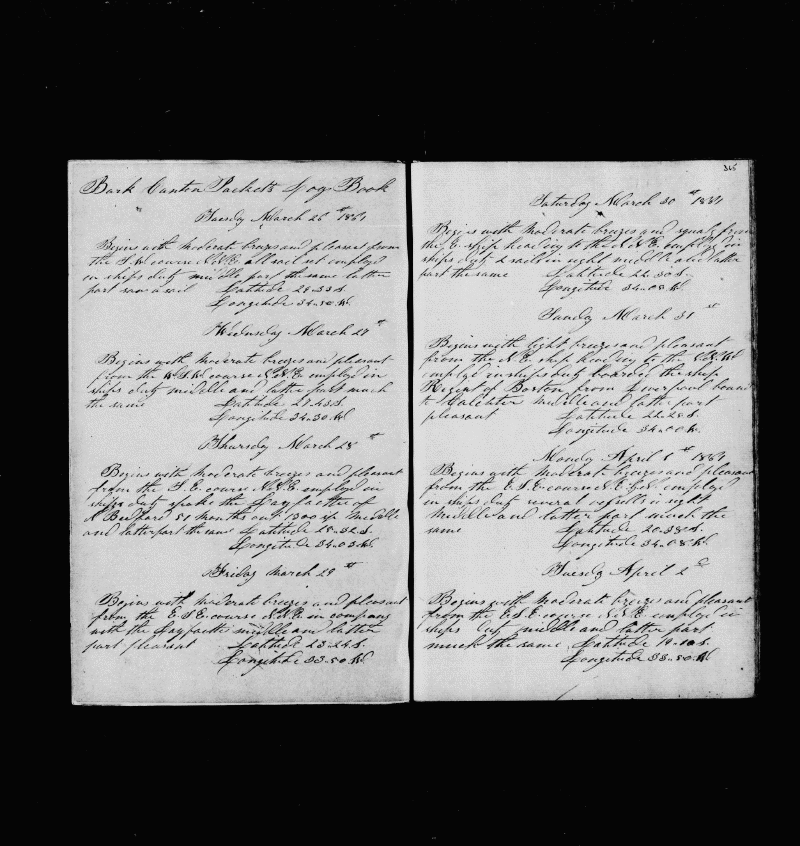 Bark Canton Packets Log Book
Tuesday March 26th 1861
Begins with moderate breezes and pleasant from
the S.W. course N.N.E. all sail set employed
in ships duty middle part the same latter
part saw a sail Latitude 29..33 S.
Longitude 34..50 W
Wednesday March 27th
Begins with moderate breezes and pleasant
from the W.S.W. course N.N.E. employed in
ships duty middle and latter part much
the same Latitude 27..43 S.
Longitude 34..30 W
Thursday March 28th
Begins with moderate breezes and pleasant
from the S.E. course N.N.E. employed in
ships duty spoke the Lagoda of
N Bedford 51 months out 1300 sp middle
and latter part the same Latitude 25..32 S.
Longitude 34..03 W.
Friday March 29th
Begins with moderate breezes and pleasant
from the E.S.E. course N.N.E. in company
with the middle and latter
part pleasant Latitude 23..24 S.
Longitude 33..50 W
365
Saturday March 30th 1861
Begins with moderate breezes and squaly from
the E. ship heading to the N.N.E. employed in
ships duty 2 sail in sight middle and latter
part the same Latitude 22..30 S.
Longitude 34..08 W.
Sunday March 31st
Begins with light breezes and pleasant
from the N.E. ship heading to the
employed in ships duty boarded the ship
of Boston from Liverpool bound
to middle and latter part
pleasant Latitude 22..20 S.
Longitude 34..00 W.
Monday April 1st 1861
Begins with moderate breezes and pleasant
from the E.S.E. course employed
in ships duty several in sight
Middle and latter part much the
same Latitude 20..38 S.
Longitude 34..08 W
Tuesday April 2d
Begins with moderate breezes and pleasant
from the E.S.E. course N.N.E. employed in
ships duty middle and latter part
much the same Latitude
Longitude 33..50 W